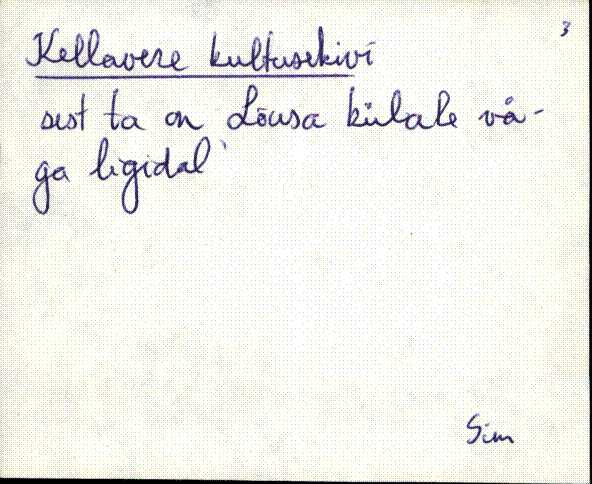 3
Kellavere kultusekivi
sest ta on Lõusa külale vä-
ga ligidal
Sim